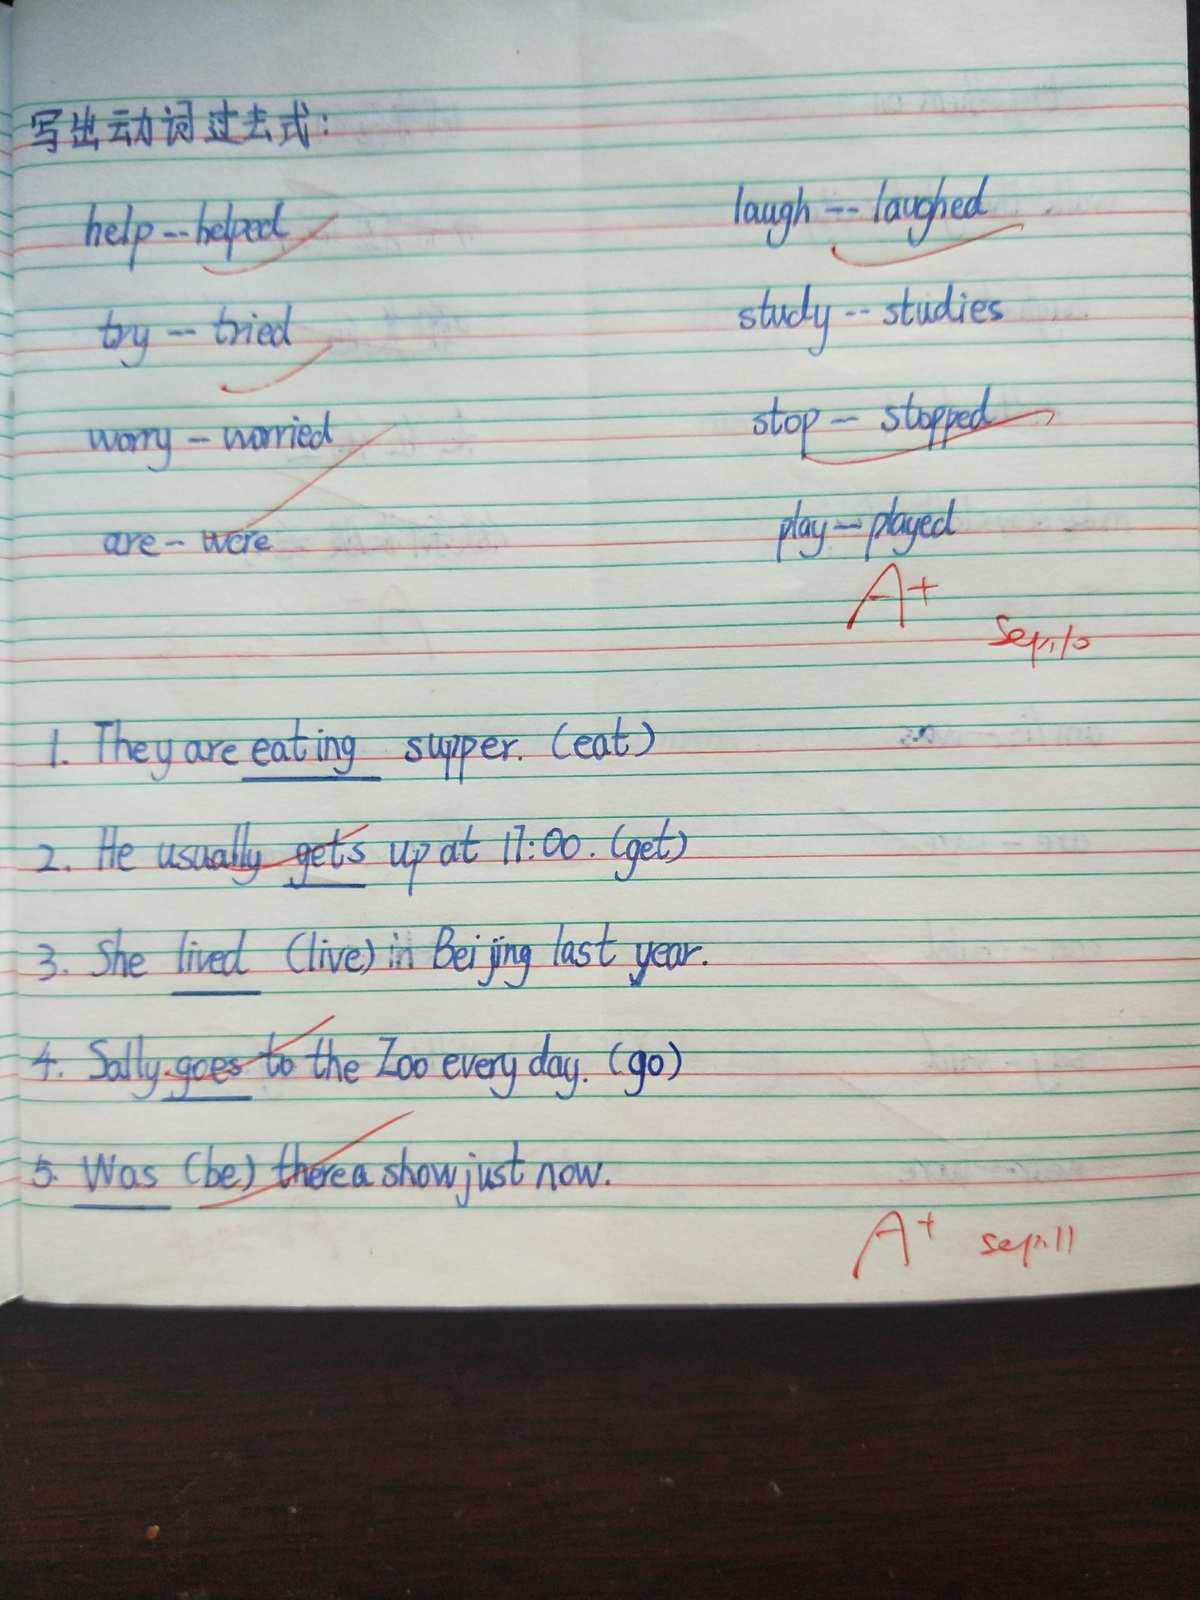 写出动词过去式:
help--helped laugh--laughed
try--tried study--studies
worry--worried stop--stopped
are--were play--played
A+
Sep.10
1. They are eating supper. (eat)
2. He usually gets up at 17:00. (get)
3. She lived (live) in Beijing last year.
4. Sally goes to the Zoo every day. (go)
5. Was (be) there a show just now.
A+ sep.11